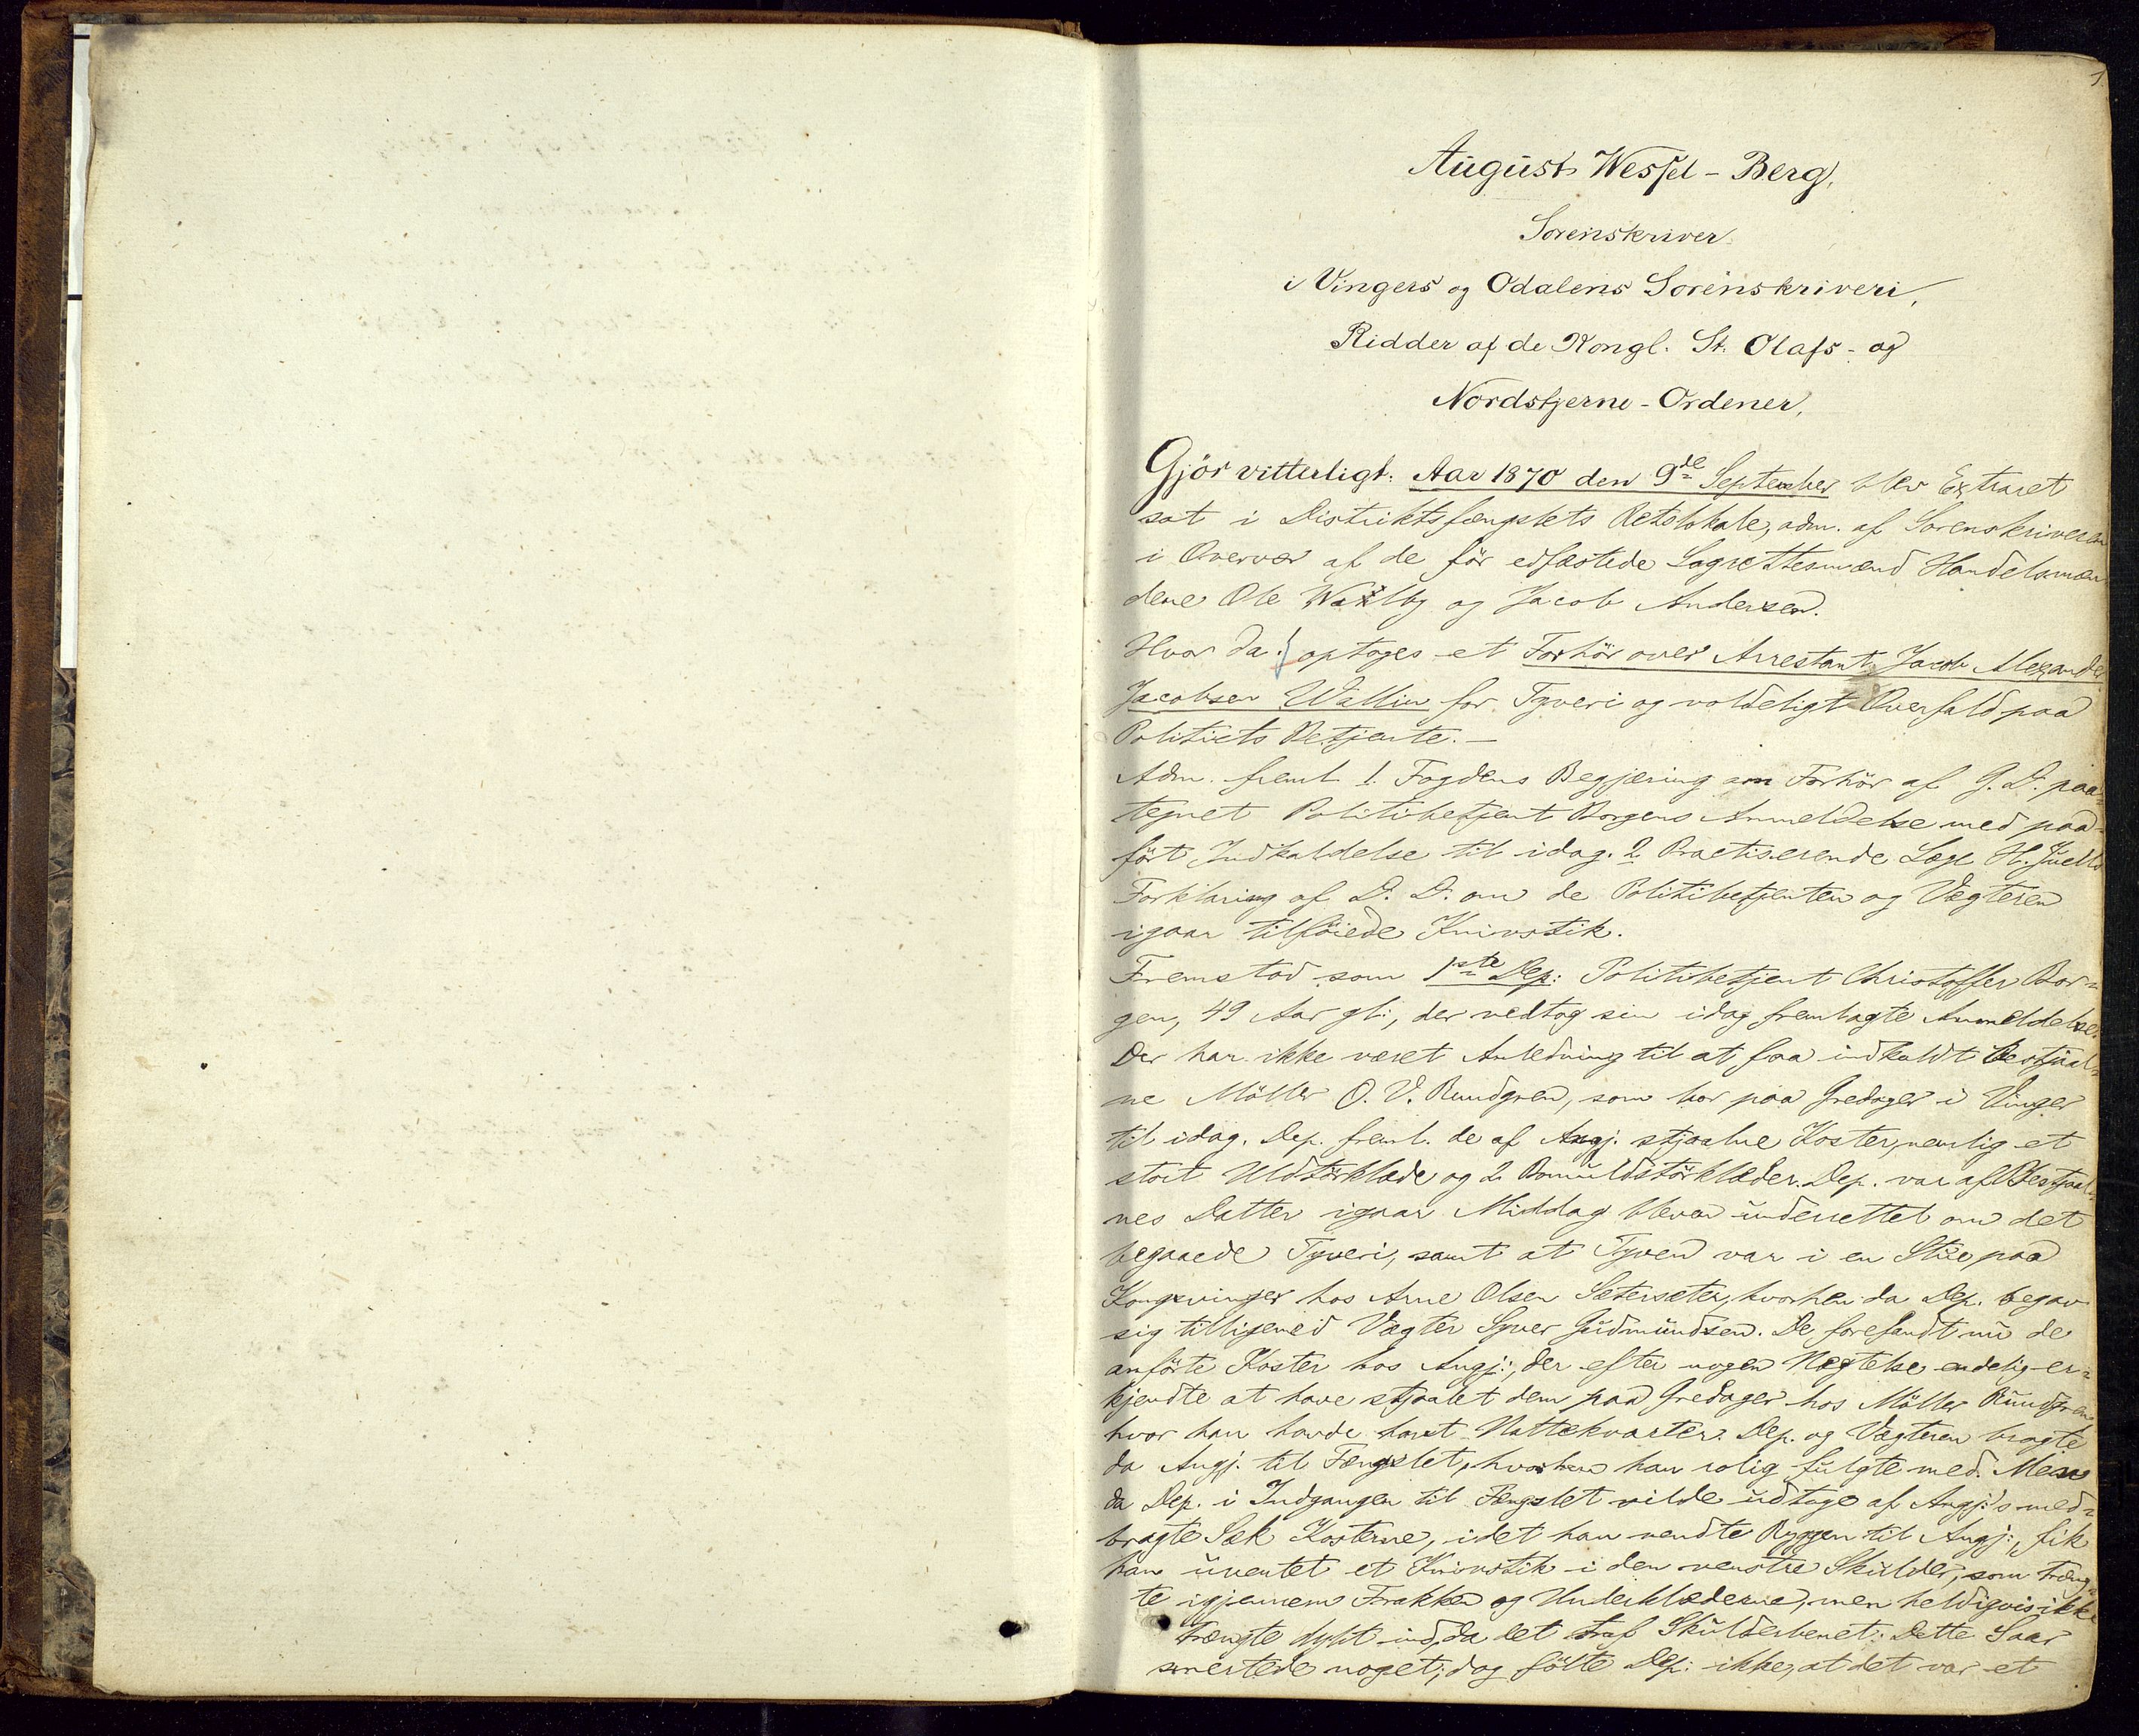 1
August Wessel-Berg,
Sorenskriver
i Vingers og Odalens Sorenskriveri,
Ridder af de Kongl. St. Olafs- og
Nordstjerne-Ordener,
Gjör vitterligt: Aar 1870 den 9de September blev Extraret
sat i Distriktsfængslets Retslokale, adm. af Sorenskriveren
i Overvær af de för edfæstede Lagrettesmænd Handelsmæn
dene Ole Waalby og Jacob Andersen.
Hvor da: optoges et Forhör over Arrestant Jacob Alexander
Jacobsen Wallin for Tyveri og voldeligt Overfald paa
Politiets Betjente.—
Adm. freml. 1. Fogdens Begjæring om Forhör af G. D. paa-
tegnet Politibetjent Borgens Anmeldelse med paa-
fört Indkaldelse til idag. 2 Practiserende Læge H. Juells
Forklaring af D. D. om de Politibetjenten og Vægteren
igaar tilföiede Knivstik.
Fremstod som 1ste Dep: Politibetjent Christoffer Bor-
gen, 49 Aar gl:, der vedtog sin idag fremlagte Anmeldelse.
Der har ikke været Anledning til at faa indkaldt Bestjaal-
ne Möller O. V. Rundgren, som bor paa Gredager i Vinger
til idag. Dep. freml. de af Angj. stjaalne Koster, nemlig et
stort Uldtörklæde og 2 Bomuldstörklæder. Dep. var af Bestjaal-
nes Datter igaar Middag bleven underrettet om det
begaaede Tyveri, samt at Tyven var i en Stue paa
Kongsvinger hos Arne Olsen Sætersæter, hvorhen da Dep. begav
sig tilligemed Vægter Syver Gudmundsen. De forefandt nu de
anförte Koster hos Angj:, der efter nogen Nægtelse endelig er-
kjendte at have stjaalet dem paa Gredager hos Möller Rundgren,
hvor han havde havt Nattekvarter. Dep. og Vægteren bragte
da Angj. til Fængslet, hvorhen han rolig fulgte med. Men
da Dep. i Indgangen til Fængslet vilde udtage af Angj:s med-
bragte Sæk Kosterne, idet han vendte Ryggen til Angj:, fik
han uventet et Knivstik i den venstre Skulder, som træng-
te igjennem Frakken og Underklæderne, men heldigvis ikke
trængte dybt ind, da det traf Skulderbenet. Dette Saar
smertede noget; dog fölte Dep: ikke, at det var et